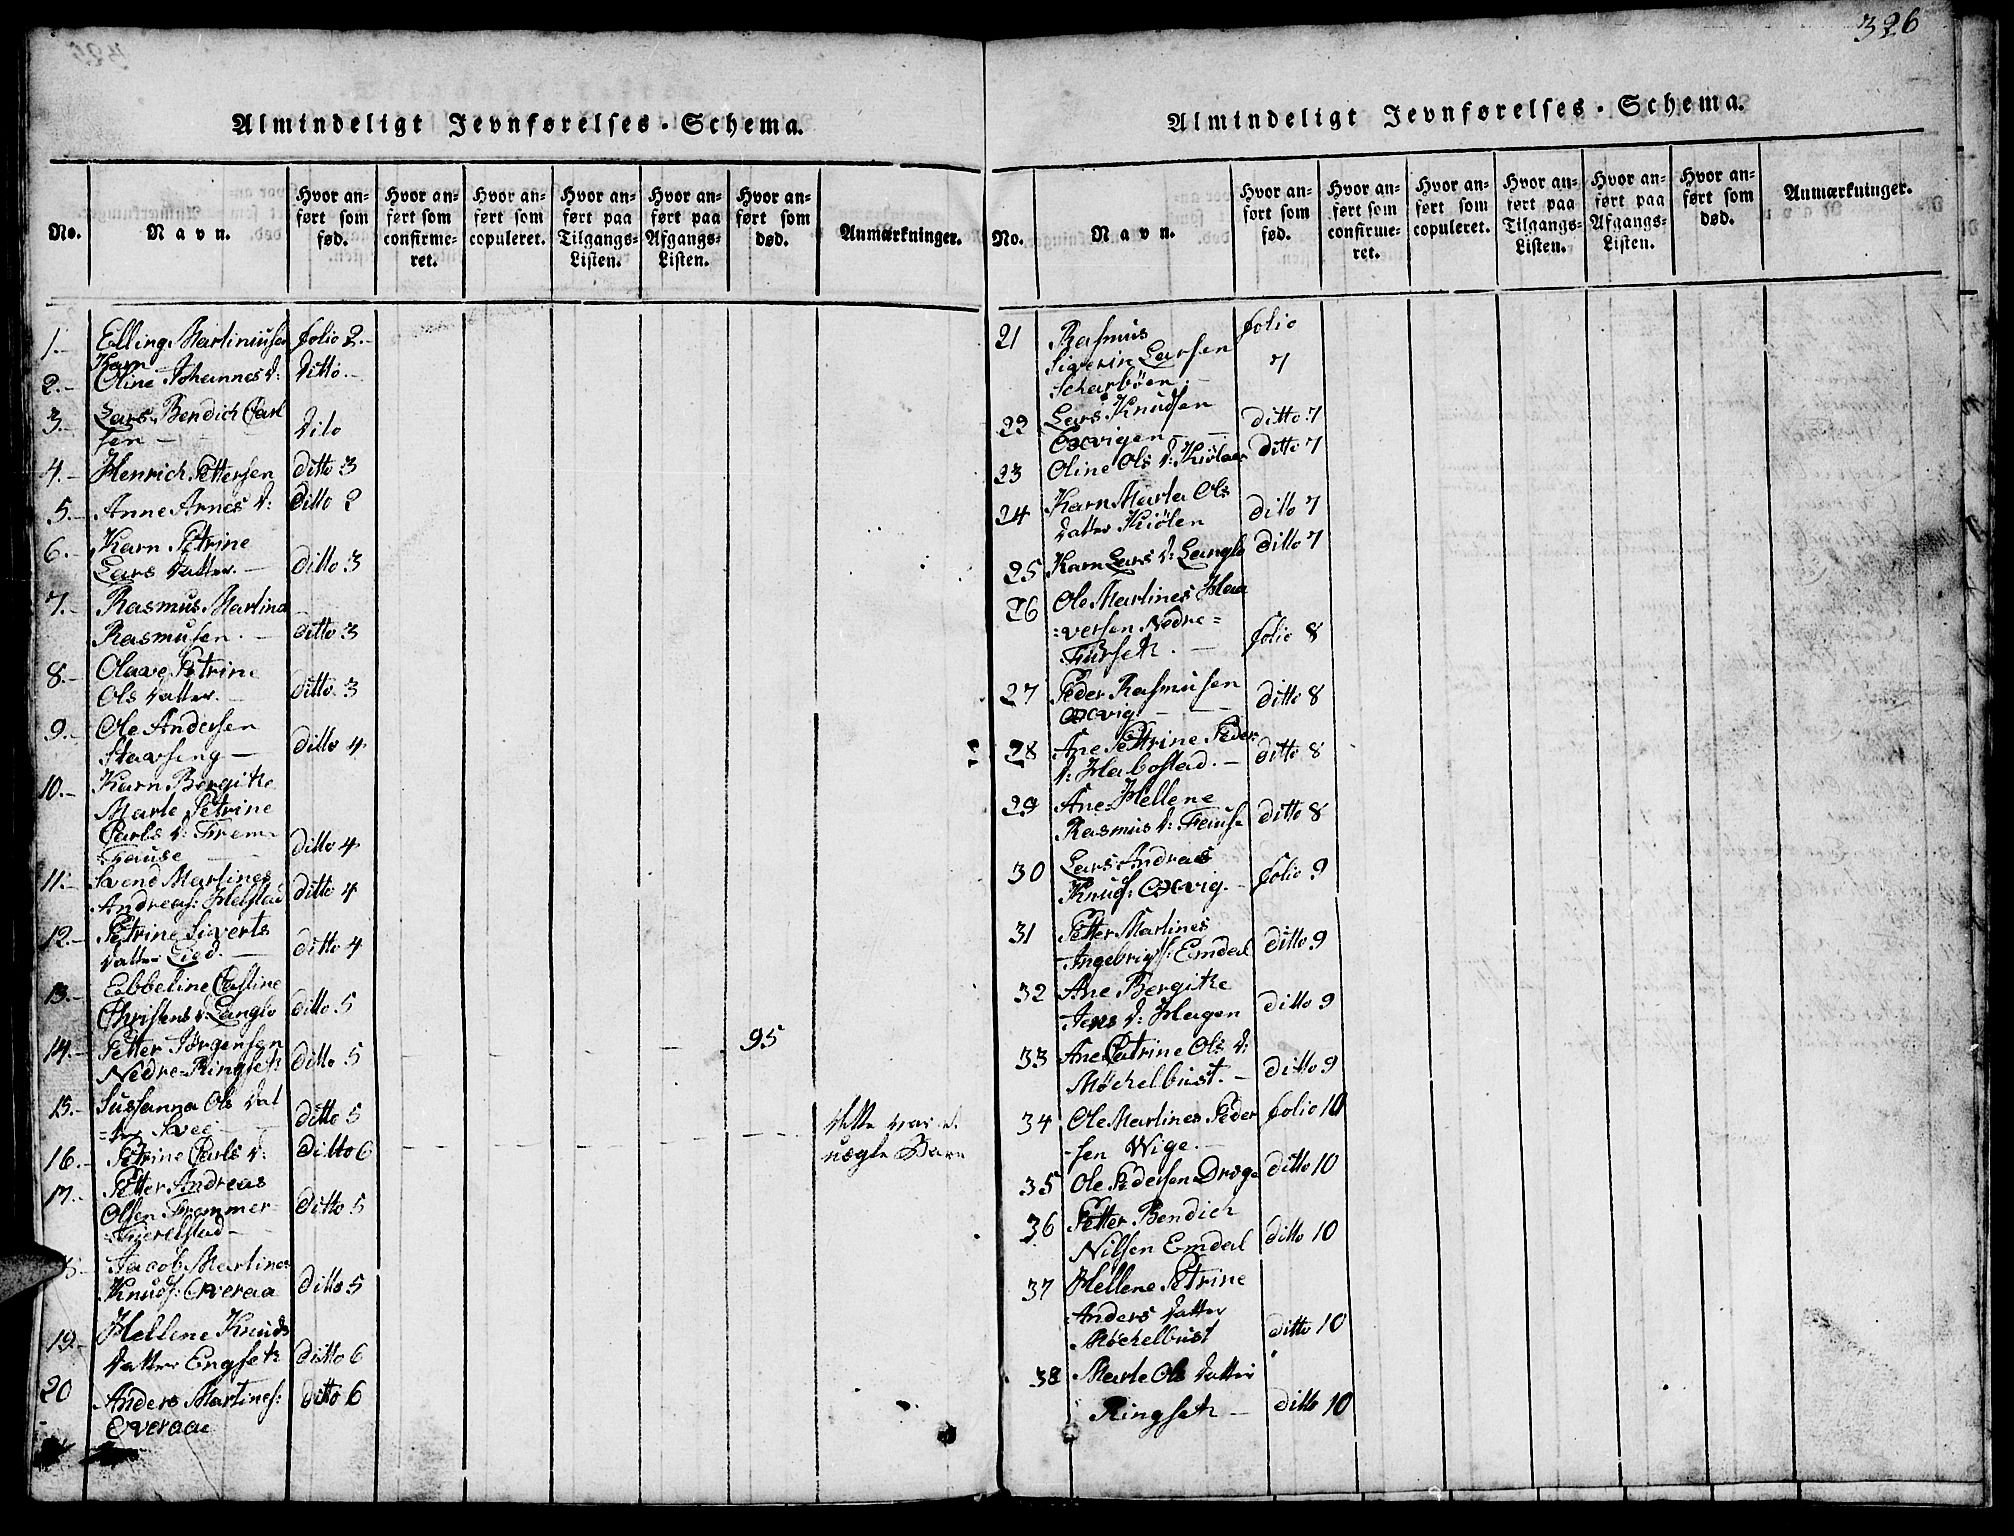 326
Almindeligt Jevnførelses-Schema.
No.
Navn.
Hvor anført som fød.
Hvor anført som confirmeret.
Hvor anført som copuleret.
Hvor anført paa Tilgangs-Listen.
Hvor anført paa Afgangs-Listen.
Hvor anført som død.
Anmærkninger.
1.- Elling Martinusen folio 2.-
Karn
2.- Oline Johannes d: Ditto.-
3.- Lars Bendich Carl
sen - Dito
4.- Henrich Pettersen ditto 3
5.- Anne Arnes d: ditto 2
6.- Karn Petrine
Lars datter.- ditto 3
7.- Rasmus Martin
Rasmusen.- ditto 3
8.- Olave Petrine
Ols datter.- ditto 3
9.- Ole Andersen
- ditto 4
10.- Karn Bergithe
Marte Petrine
Carls d: Frem
Hause ditto 4
11.- Svend Martines
Andreas: ditto 4
12.- Petrine Siverts
datter Lied.- ditto 4
13.- Ebbeline Castine
Christens d: Langlo ditto 5
14.- Petter Jørgensen
Nedre-Ringseth ditto 5 - - - - 95
15.- Sussanna Ols dat
=ter ditto 5
16.- Petrine Carls d: Ditto 6 - - - - - dette var et
uægte Barn
17.- Petter Andreas
Olsen Frammer
- ditto 5
Jacob Martines
Knuds: Overaa ditto 5
19.- Hellene Knuds
datter Engseth ditto 6
20 Anders Martines:
Overaae ditto 6
Almindeligt Jevnførelses-Schema.
No.
Navn.
Hvor anført som fød.
Hvor anført som confirmeret.
Hvor anført som copuleret.
Hvor anført paa Tilgangs-Listen.
Hvor anført paa Afgangs-Listen.
Hvor anført som død.
Anmærkninger.
21 Rasmus folio
Siverin Larsen 7
Scharbøen.-
22 Lars Knudsen
Oxvigen - - ditto 7
23 Oline Ols d: Kiølen ditto 7
24 Karn Marta Ols
datter Kiølen ditto 7
25 Karn Lars d: Langlo ditto 7
26 Ole Martines Haa
=versen Nedre=
Fürseth.- folio 8
27 Peder Rasmusen
Oxvig - - ditto 8
28 Ane Petrine Peder
d: Habostad.- ditto 8
29 Ane Hellene
Rasmus d: ditto 8
30 Lars Andreas
Knuds: Oxvig.- folio 9
31 Petter Martines
Ingebrigts: Emdal ditto 9
32 Ane Bergithe
Jens d: Hagen ditto 9
33 Ane Catrine Ols d:
Møchelbust.- ditto 9
34 Ole Martines Peder folio 10
sen Wige.-
35 Ole Pedersen Drage ditto 10
36 Petter Bendich
Nilsen Emdal ditto 10
37 Hellene Petrine
Anders datter
Møchelbust ditto 10
38 Marte Ols datter
Ringseth - ditto 10